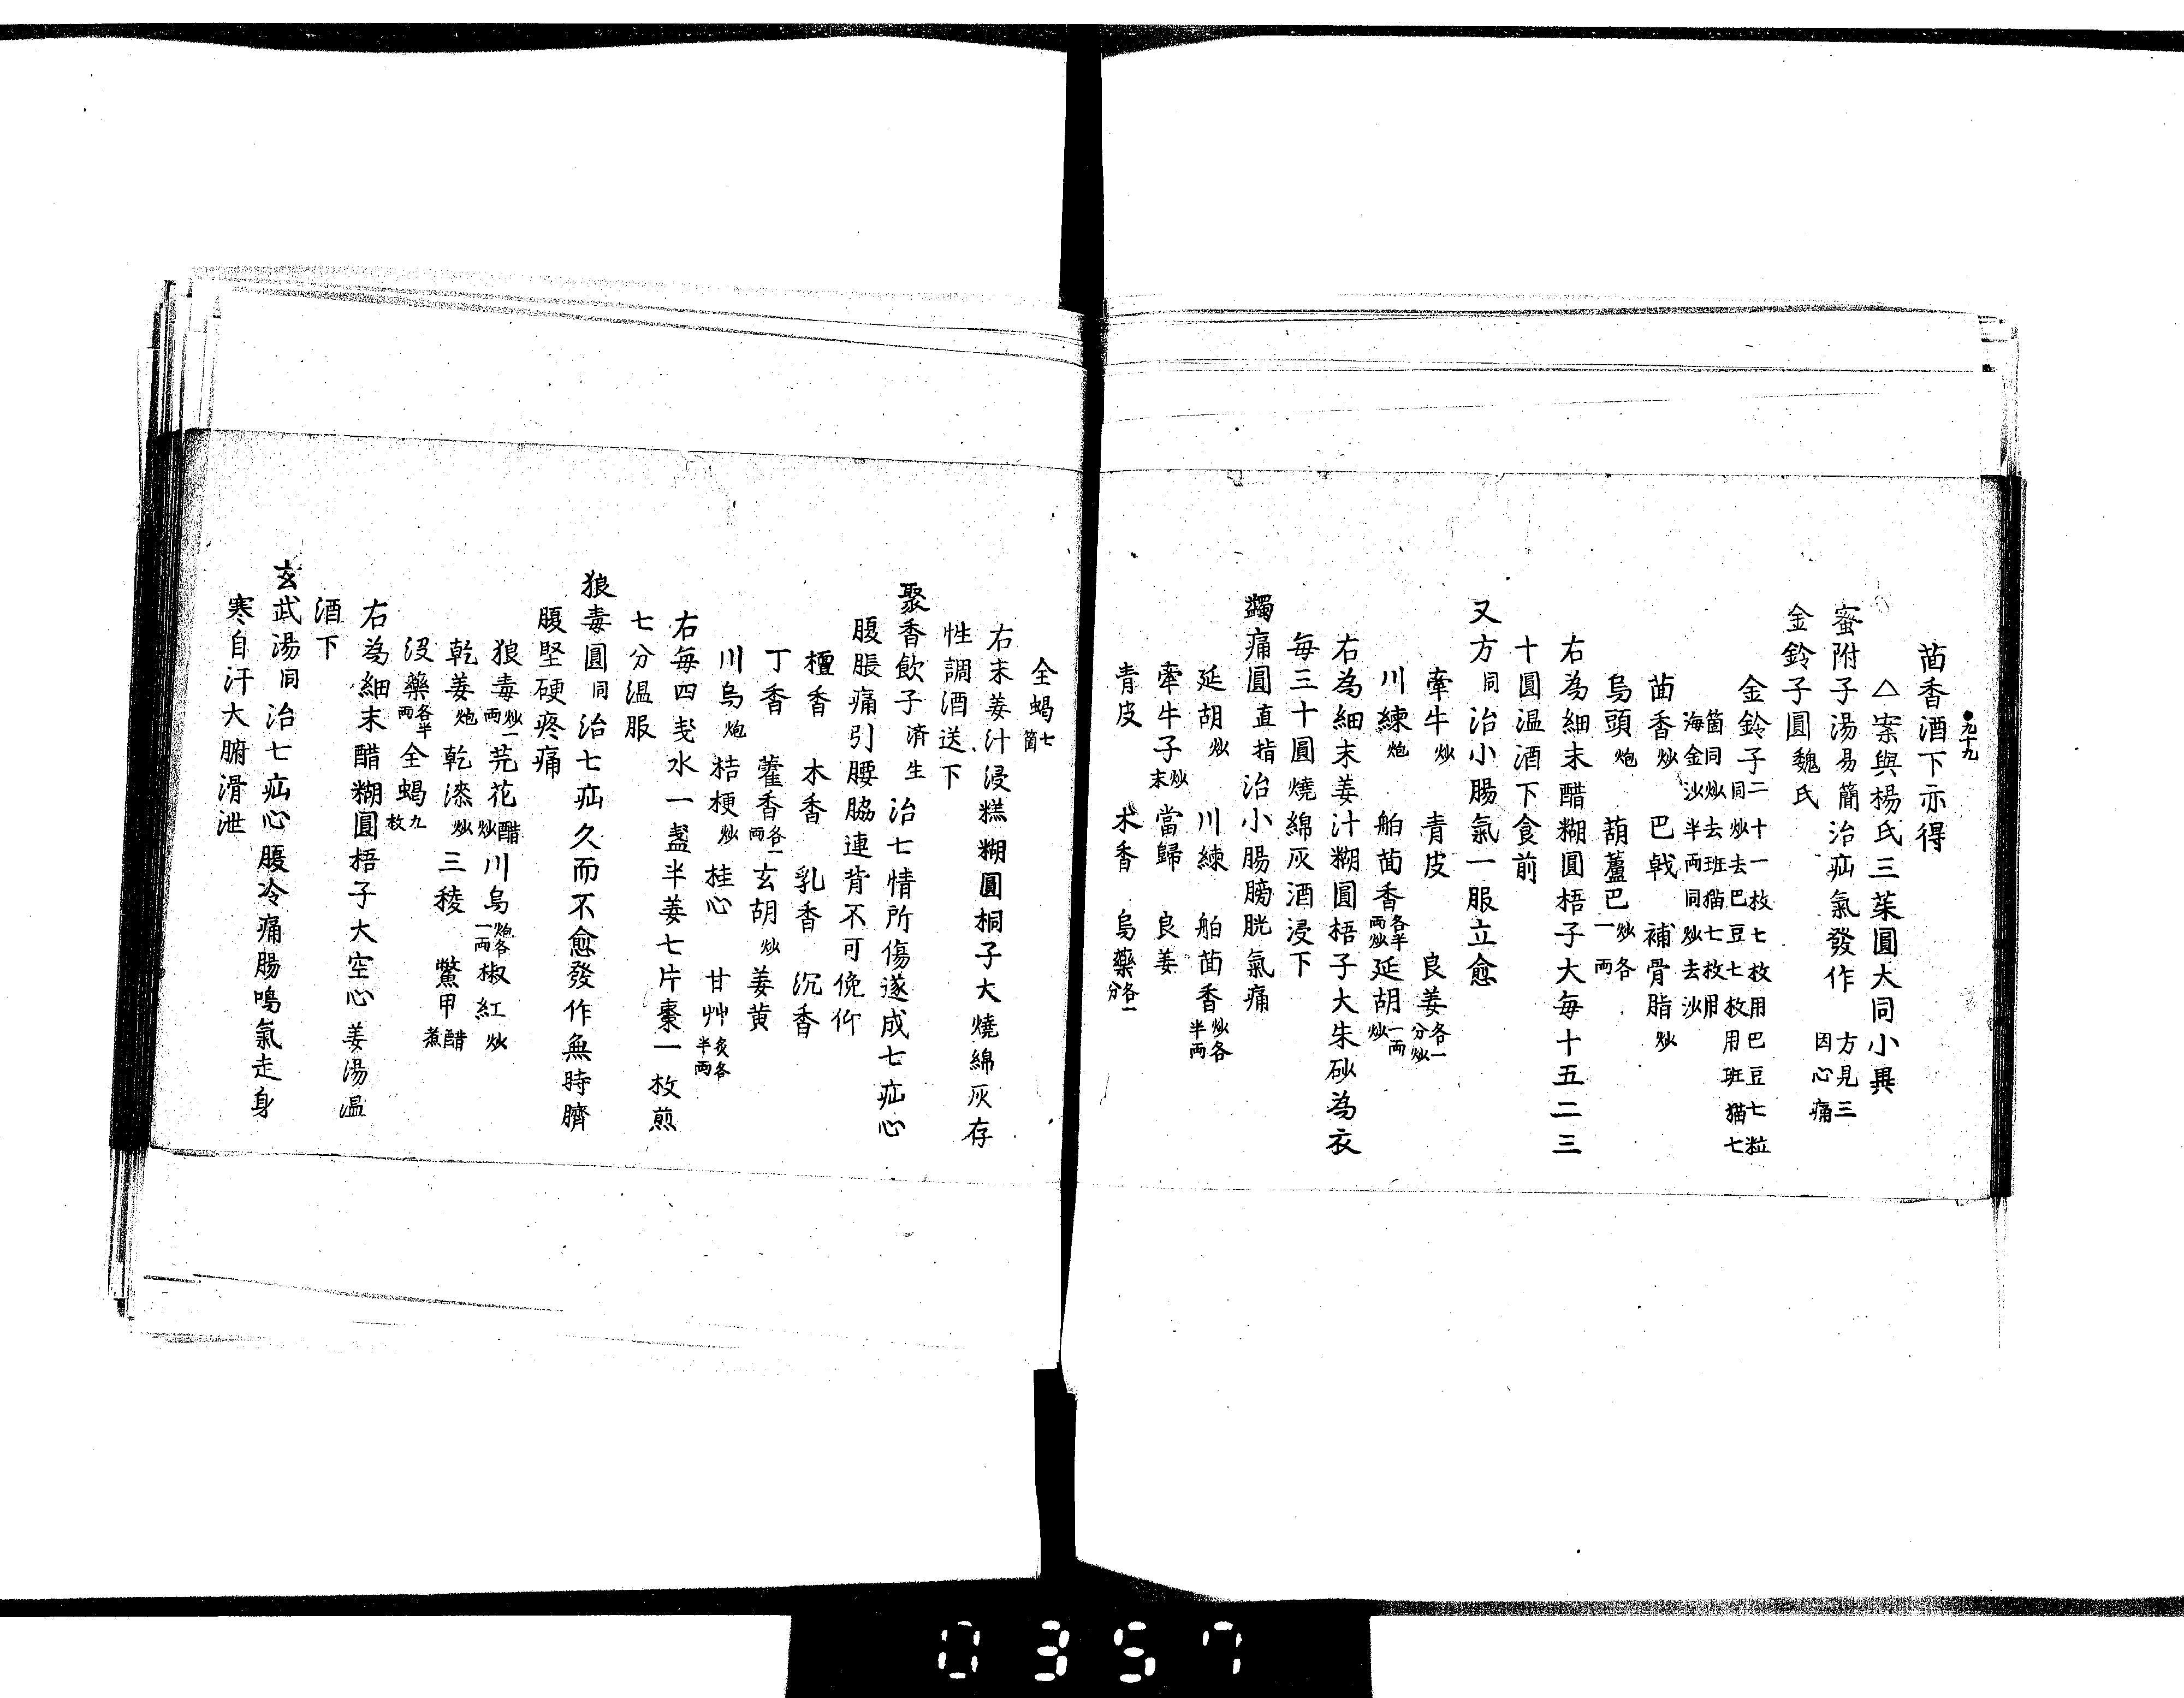 ●九十九
茴香酒下亦得
△案與楊氏三茱圓大同小異
蜜附子湯易簡治疝氣發作方見三因心痛
金鈴子圓魏氏
金鈴子二十一枚七枚用巴豆七粒同炒去巴豆七枚用班猫七
箇同炒去班猫七枚用海金沙半兩同炒去沙
茴香炒 巴戟 補骨脂炒
烏頭炮 葫蘆巴炒各一兩
右為細末醋糊圓梧子大每十五二三
十圓温酒下食前
又方同治小腸氣一服立愈
牽牛炒 青皮 良姜各一分炒
川練炮 舶茴香各半兩炒 延胡一兩炒
右為細末姜汁糊圓梧子大朱砂為衣
每三十圓燒綿灰酒浸下
蠲痛圓直指治小腸膀胱氣痛
延胡炒 川練 舶茴香炒各半兩
牽牛子炒末 當歸 良姜
青皮 木香 烏藥各一分
全蝎七箇
右末姜汁浸糕糊圓桐子大燒綿灰存
性調酒送下
聚香飲子済生治七情所傷遂成七疝心
腹脹痛引腰脇連背不可俛仰
檀香 木香 乳香 沉香
丁香 藿香各一兩 玄胡炒 姜黄
川烏炮 桔梗炒 桂心 甘艸炙各半兩
右每四戔水一盞半姜七片棗一枚煎
七分温服
狼毒圓同治七疝久而不愈發作無時臍
腹堅硬疼痛
狼毒炒一兩 芫花醋炒 川烏炮各一兩 椒紅炒
乾姜炮 乾漆炒 三稜 鱉甲醋煮
沒藥各半兩 全蝎九枚
右為細末醋糊圓梧子大空心姜湯温
酒下
玄武湯同治七疝心腹冷痛腸鳴氣走身
寒自汗大腑滑泄
0357